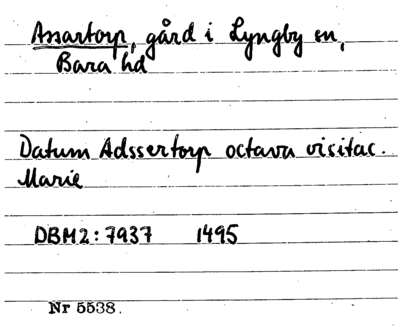 Assartorp, gård i Lyngby sn,
Bara hd
Datum Adssertorp octava visitac.
Marie
DBM2: 7937 1495
Nr 5538.